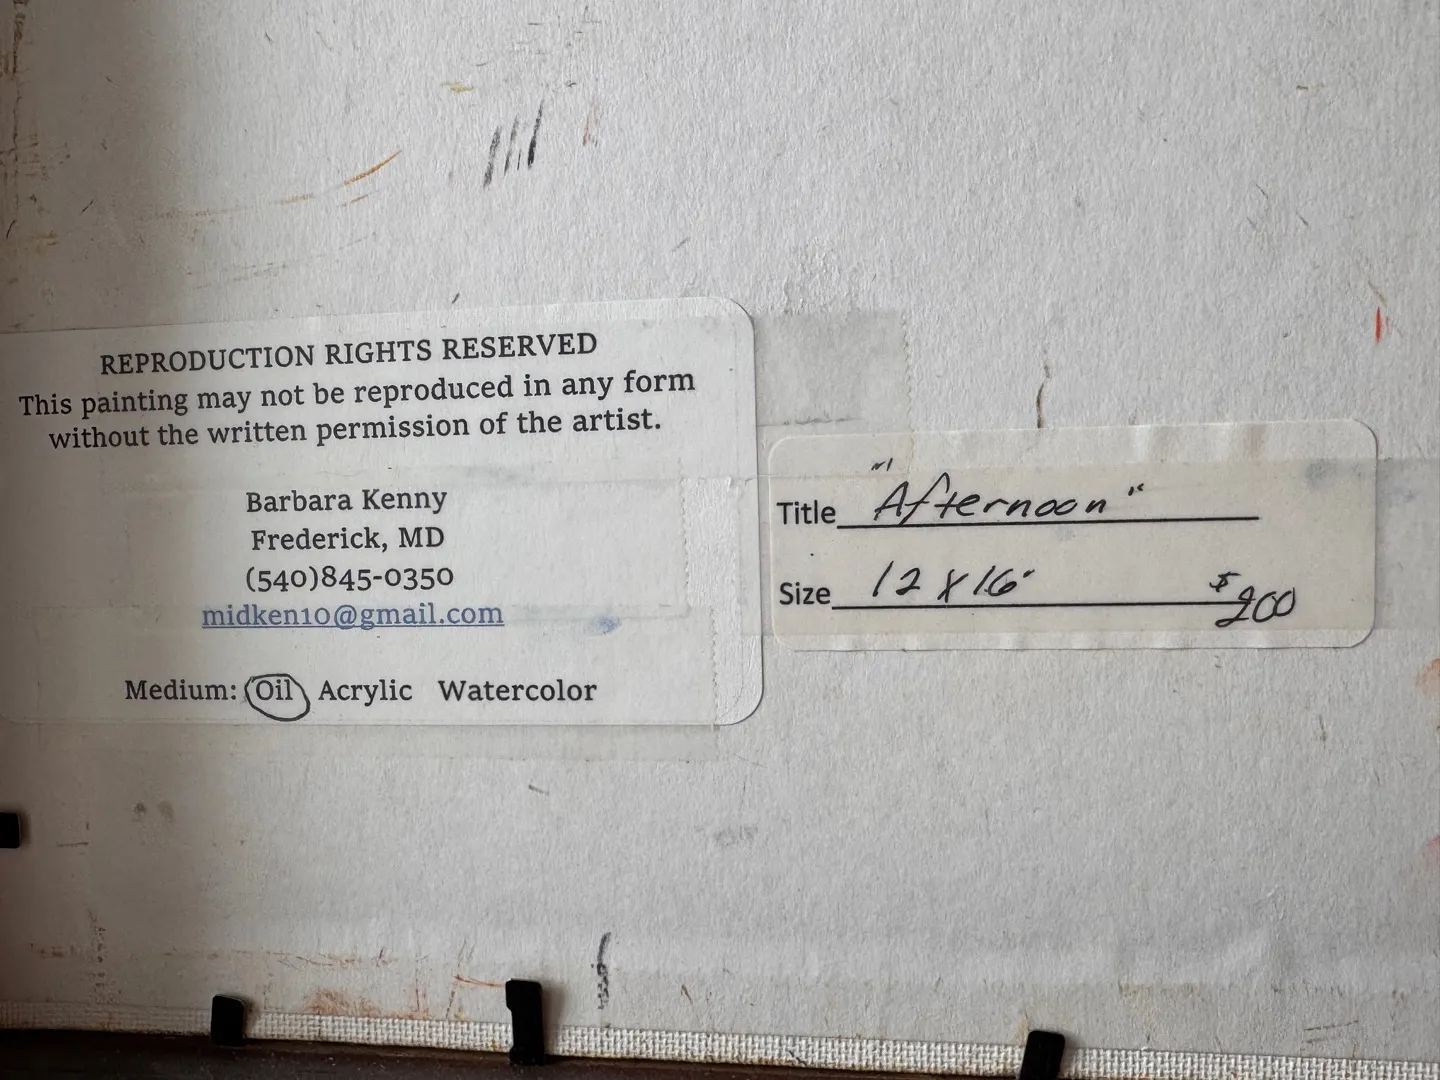 REPRODUCTION RIGHTS RESERVED
This painting may not be reproduced in any form
without the written permission of the artist.
Barbara Kenny
Frederick, MD
(540)845-0350
midken10@gmail.com
Medium: Oil Acrylic Watercolor
Title "Afternoon"
Size 12 X 16" $200